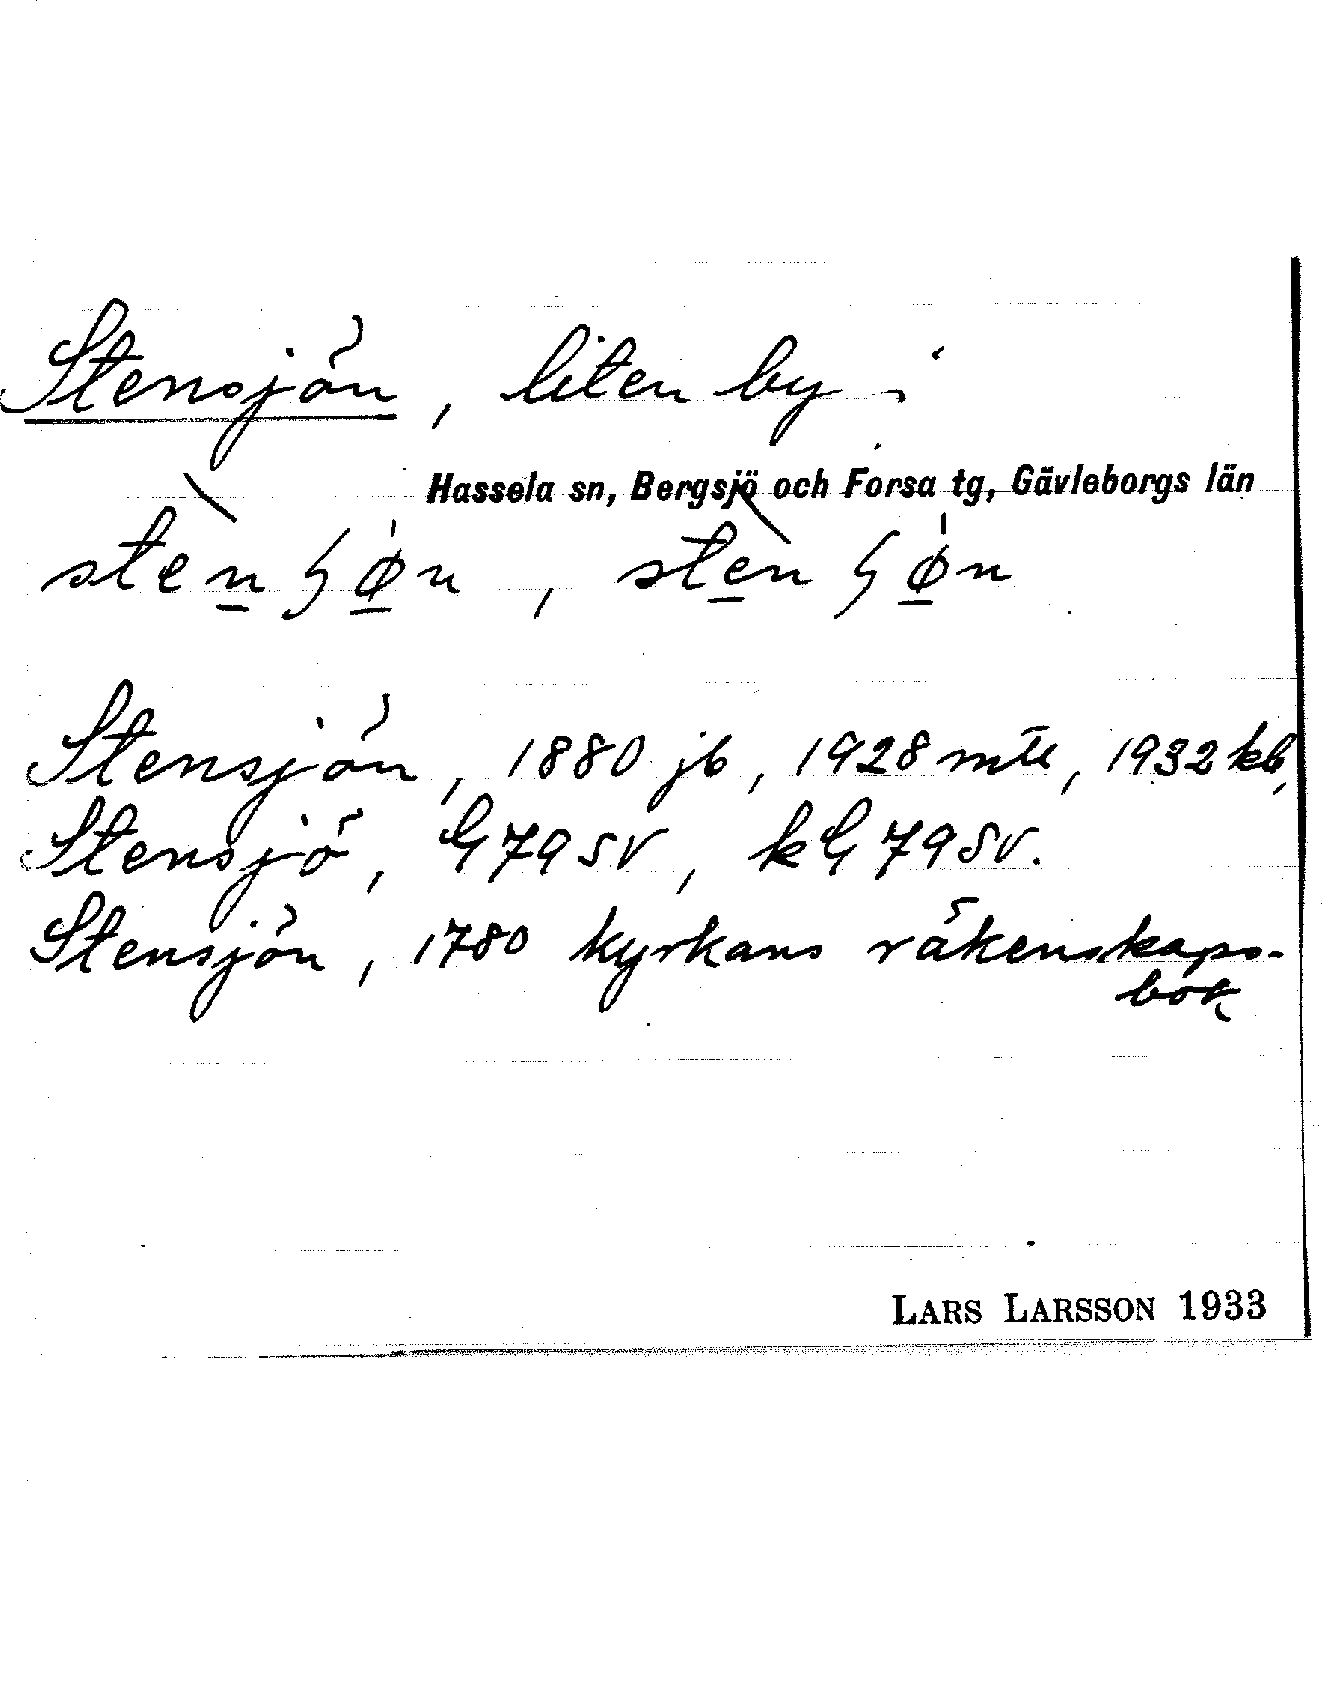 Stensjön, liten by i
Hassela sn, Bergsjö och Forsa tg, Gävleborgs län
stènʃø̀n, stènʃø̀n
Stensjön, 1880 jb, 1928 mtl, 1932 kb,
Stensjö, G 79 SV, kG 79 SV.
Stensjön, 1780 kyrkans räkenskaps-
bok
LARS LARSSON 1933